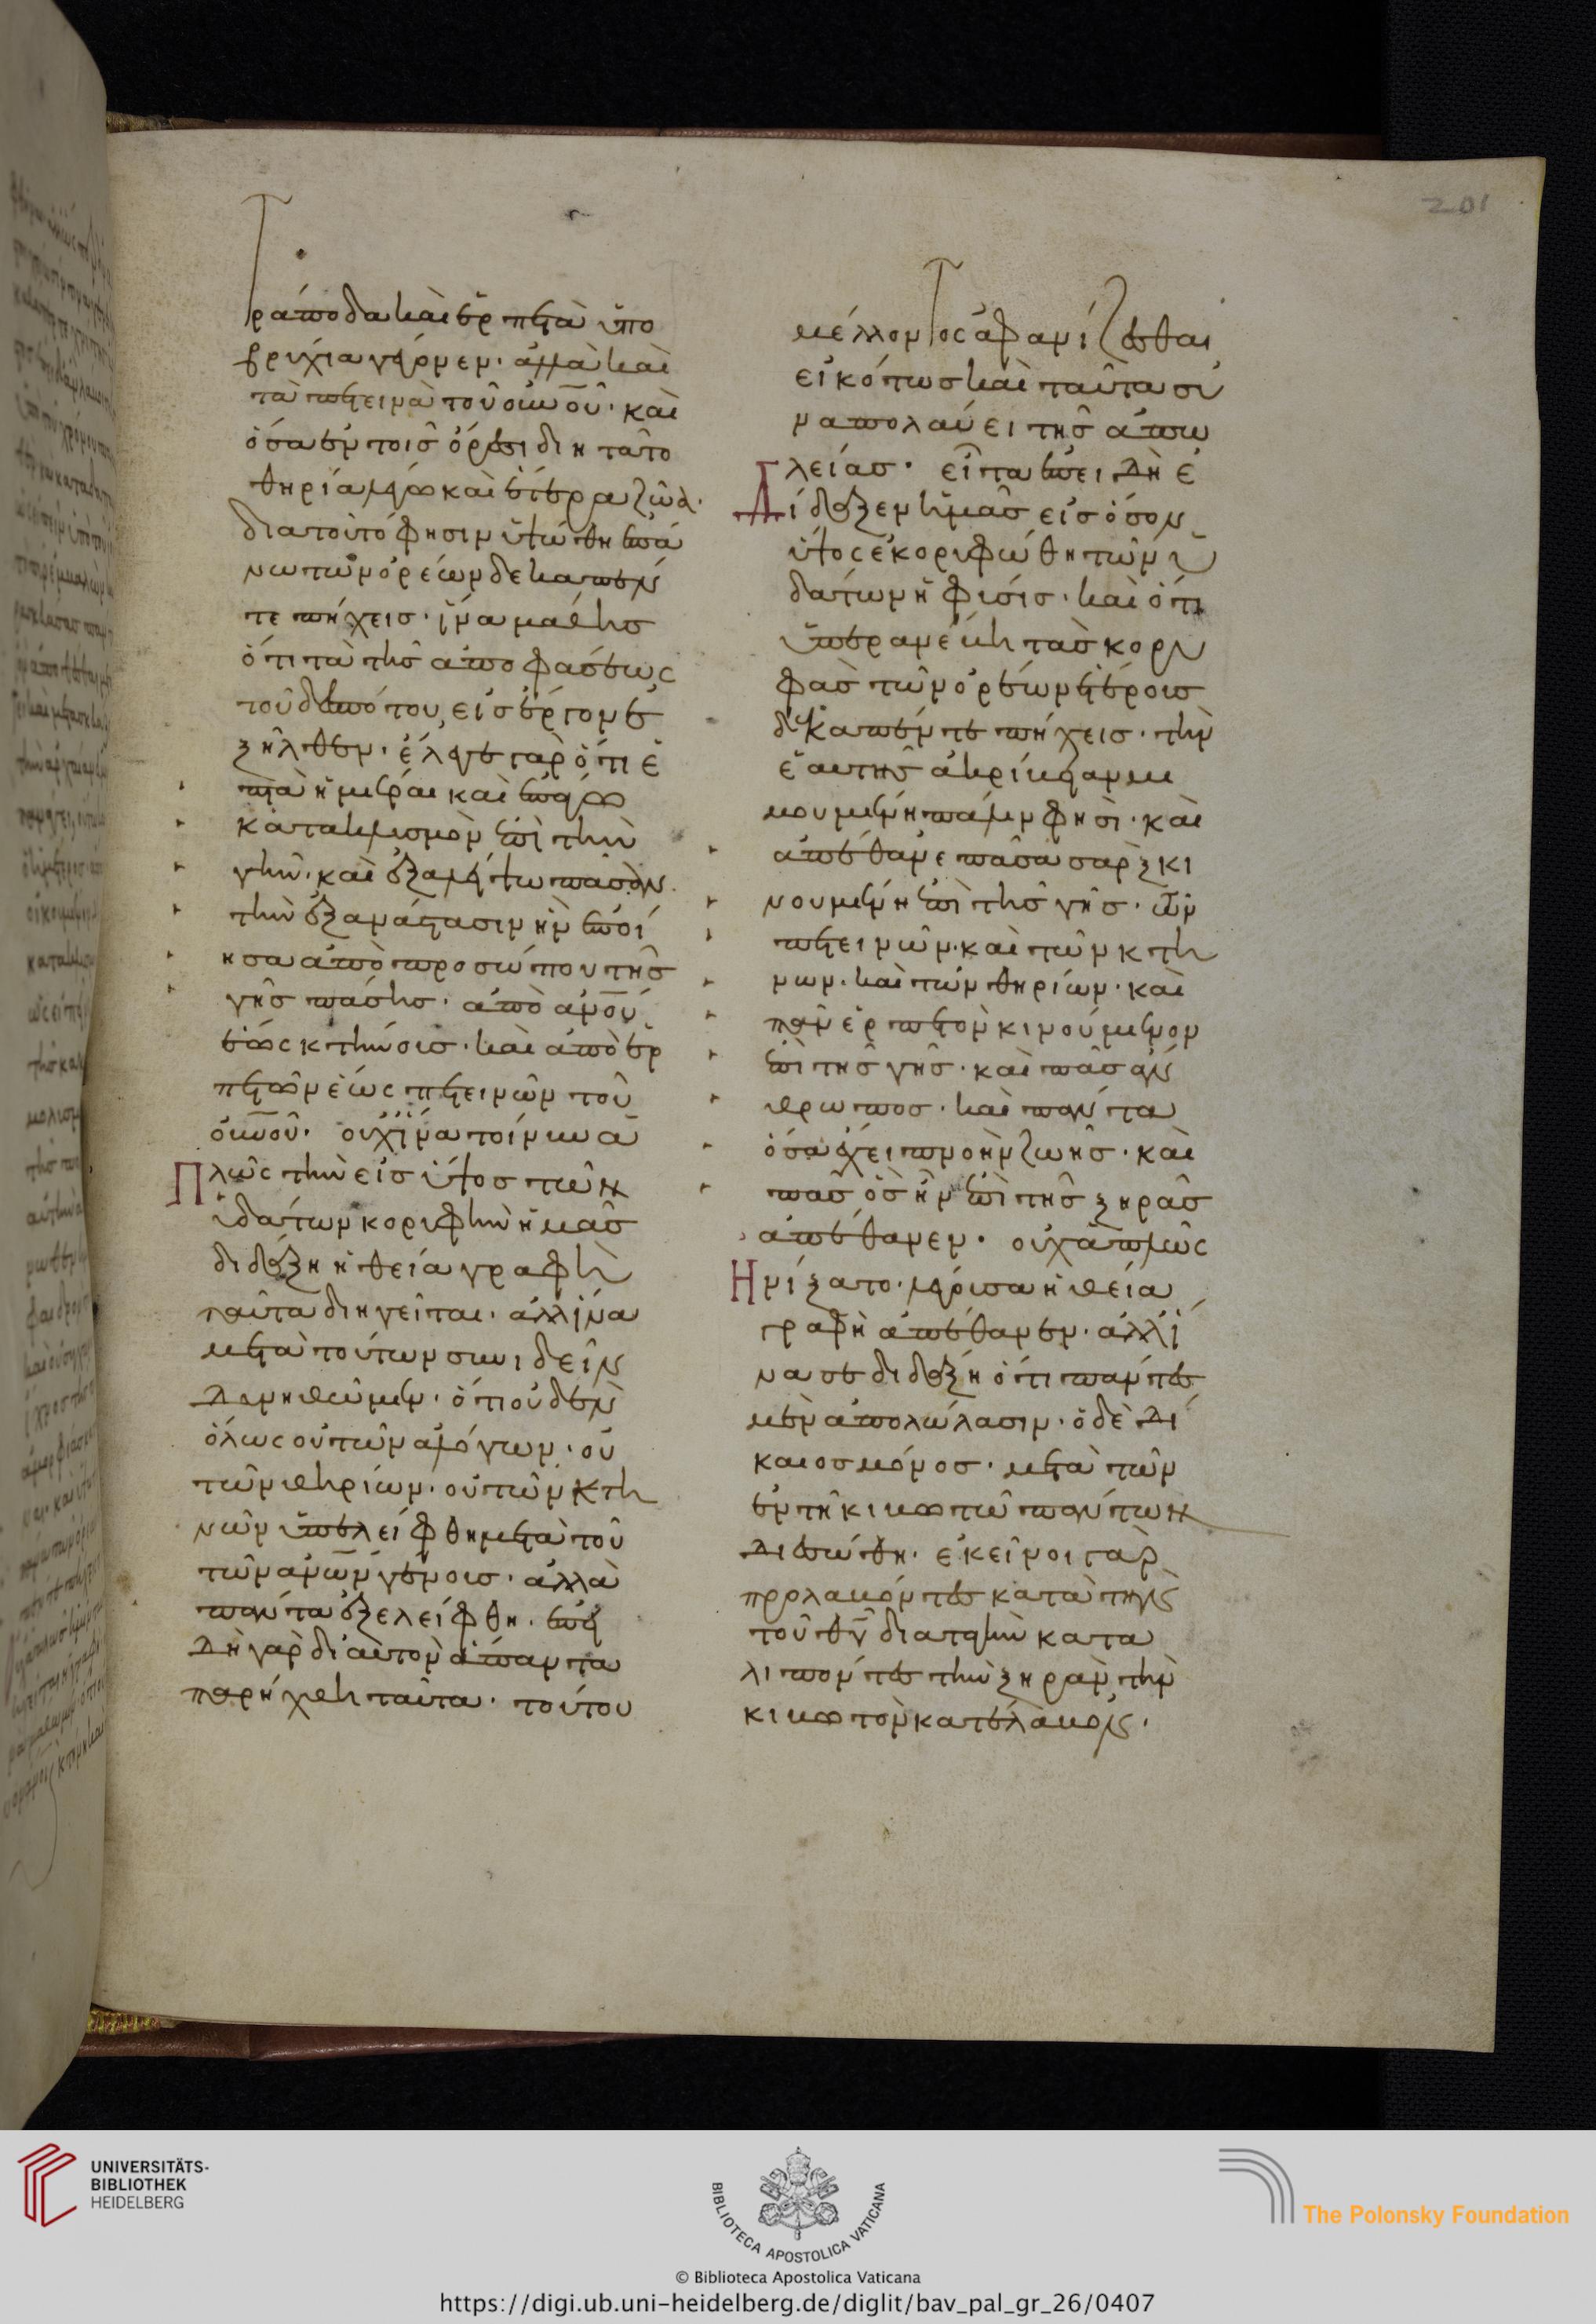 201
τράποδα καὶ ἑρπετὰ ὑπο
βρύχια γέγονεν· ἀλλὰ καὶ
τὰ πετεινὰ τοῦ οὐνοῦ· καὶ
ὅσα ἐν τοῖς ὄρεσι διητᾶτο
θηρία τὲ καὶ ἕτερα ζῶα·
διατοῦτό φησιν ὑψώθη ἐπά
νω τῶν ὀρέων δεκαπέν
τε πήχεις· ἵνα μάθης
ὅτι τὰ τῆς ἀποφάσεως
τοῦ δεσπότου, εἰς ἔργον ἐ
ξῆλθεν· ἔλεγε γὰρ ὅτι ἑ
πτὰ ἡμέραι καὶ ἐπάγω
κατακλυσμὸν ἐπὶ τὴν
γῆν· καὶ ἐξαλείψω πᾶσαν
τὴν ἐξανάστασιν ἣν ἐποί
ησα ἀπὸ προσώπου τῆς
γῆς πάσης· ἀπὸ ἀνοῦ
ἕως κτήνους· καὶ ἀπὸ ἑρ
πετῶν ἕως πετεινῶν τοῦ
οὐνοῦ· οὐχ ἵνα τοίνυν ἁ
πλῶς τὴν εἰς ὕψος τῶν
ὑδάτων κορυφὴν ἡμᾶς
διδάξη ἡ θεία γραφὴ
ταῦτα διηγεῖται· ἀλλ ἵνα
μετὰ τούτων συνιδεῖν
δυνηθῶμεν· ὅτι οὐδὲν
ὅλως οὐ τῶν ἀλόγων· οὐ
τῶν θηρίων· οὐ τῶν κτη
νῶν ὑπελείφθη μετὰ τοῦ
τῶν ἀνων γένους· ἀλλὰ
πάντα ἐξελείφθη· ἐπει
δὴ γὰρ δι αὐτὸν ἅπαντα
παρήχθη ταῦτα· τούτου
μέλλοντος ἀφανίζεσθαι
εἰκότως καὶ ταῦτα συ
ναπολαύει τῆς ἀπω
λείας· εἶτα ἐπειδὴ ἐ
δίδαξεν ἡμᾶς εἰς ὅσον
ὕψος ἐκορυφώθη τῶν ὑ
δάτων ἡ φύσις· καὶ ὅτι
ὑπεραναβᾶσα τὰς κορυ
φὰς τῶν ὀρέων ἑτέροις
δεκαπέντε πήχεις· τὴν
ἑαυτῆς ἀκρίβειαν μι
μουμένη πάλιν φησὶ· καὶ
ἀπέθανε πᾶσα σὰρξ κι
νουμένη ἐπὶ τῆς γῆς· τῶν
πετεινῶν· καὶ τῶν κτη
νων· καὶ τῶν θηρίων· καὶ
πᾶν ἑρπετὸν κινούμενον
ἐπὶ τῆς γῆς· καὶ πᾶς ἄν
θρωπος· καὶ πάντα
ὅσα ἔχει πνοὴν ζωῆς· καὶ
πᾶς ὃς ἦν ἐπὶ τῆς ξηρᾶς
ἀπέθανεν· οὐχ ἁπλῶς
ἠνίξατο λέγουσα ἡ θεία
γραφὴ ἀπέθανεν· ἀλλ ἵ
να σε διδάξη ὅτι πάντες
μὲν ἀπολώλασιν· ὁ δὲ δί
καιος μόνος· μετὰ τῶν
ἐν τῆ κιβωτῶ πάντων
διεσώθη· ἐκεῖνοι γὰρ
προλαβόντες κατὰ τῆς
τοῦ θυ διαταγὴν κατα
λιπόντες τὴν ξηρὰν τὴν
κιβωτὸν κατέλαβον·
UNIVERSITÄTS-
BIBLIOTHEK
HEIDELBERG
BIBLIOTECA APOSTOLICA VATICANA
© Biblioteca Apostolica Vaticana
The Polonsky Foundation
https://digi.ub.uni-heidelberg.de/diglit/bav_pal_gr_26/0407